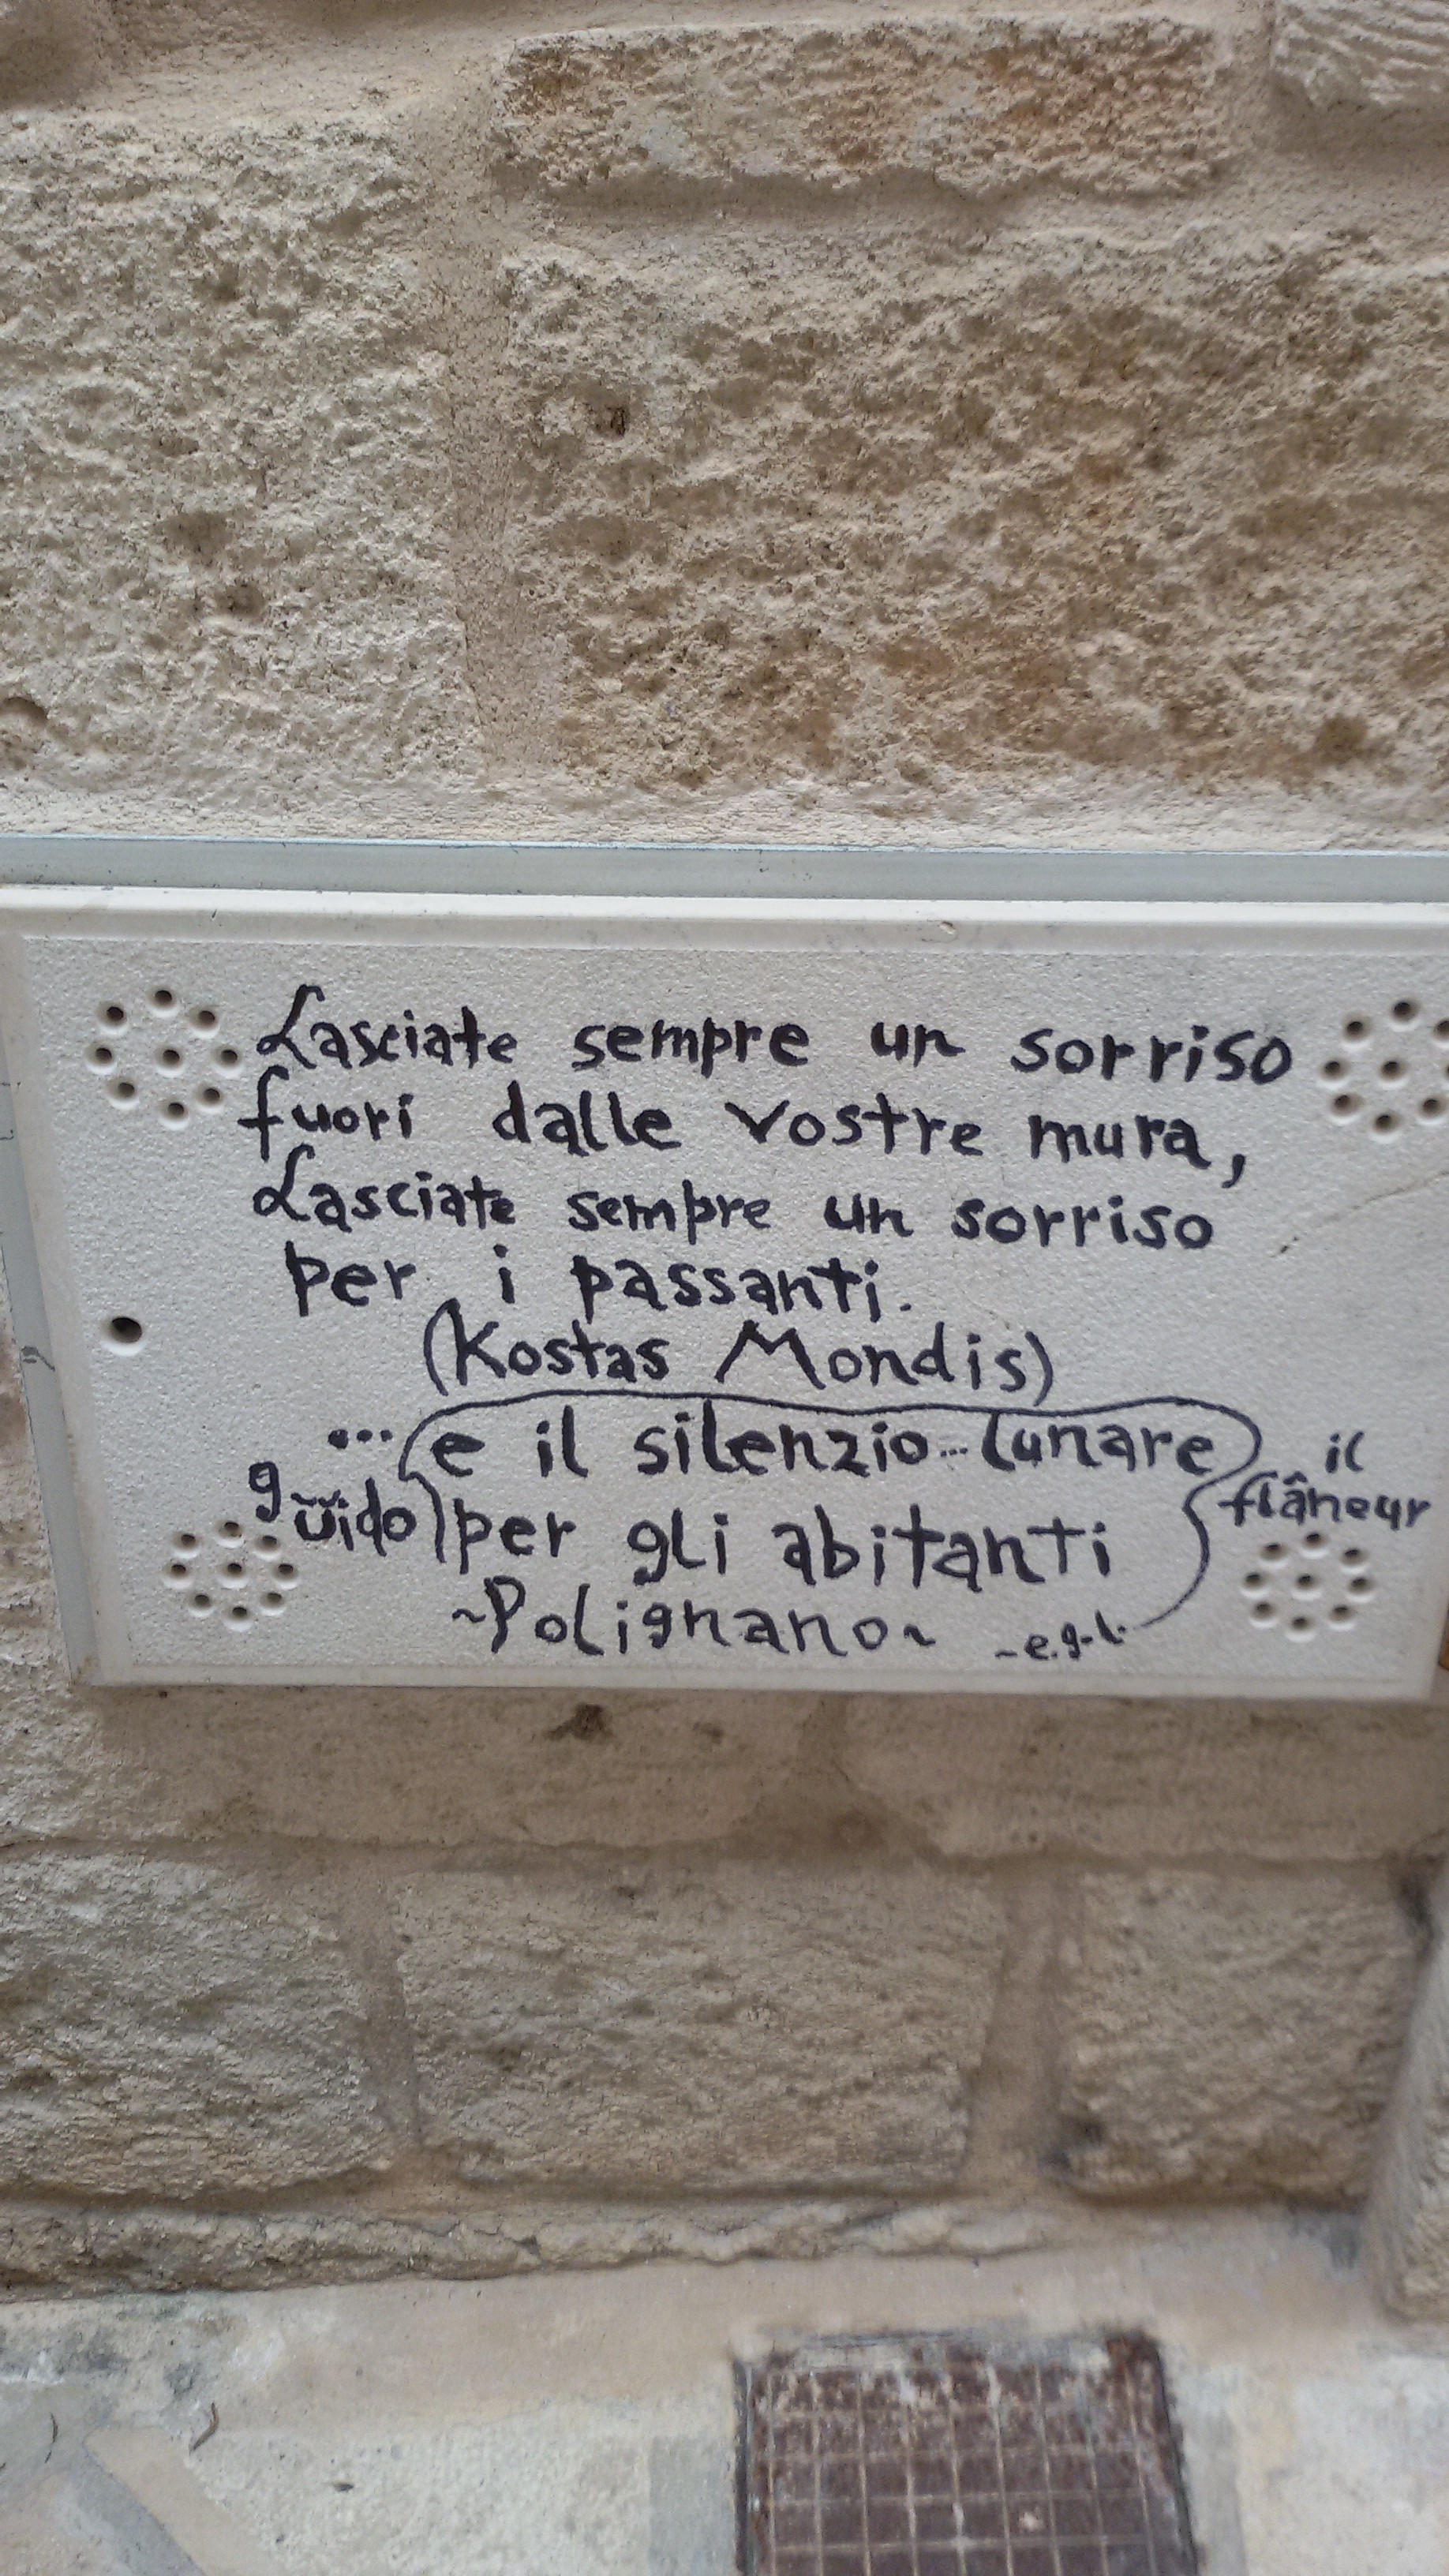 Lasciate sempre un sorriso
fuori dalle vostre mura,
Lasciate sempre un sorriso
per i passanti.
(Kostas Mondis)
... e il silenzio... lunare
per gli abitanti
~Polignano~ -e.g.l.
guido
il
flâneur